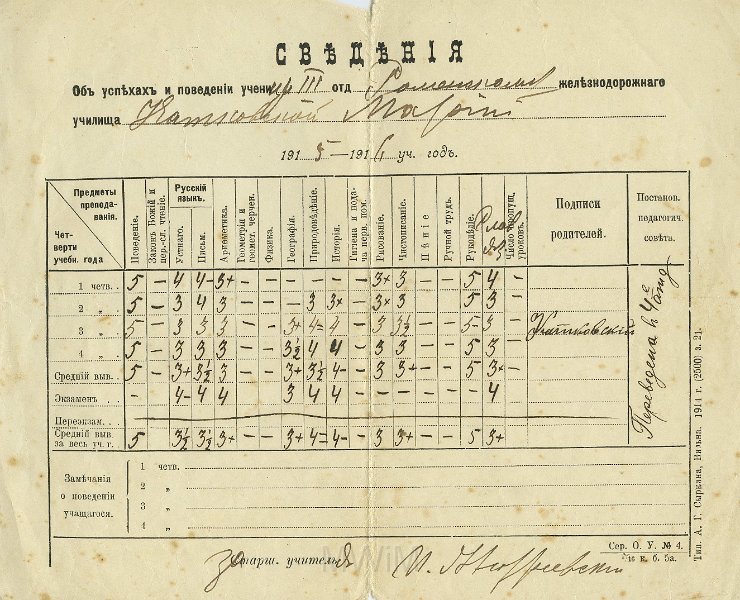 СВѢДѢНІЯ
Объ успѣхахъ и поведеніи учениц III отд Роменскаго желѣзнодорожнаго
училища
1915—1916 уч. годъ.
Предметы преподаванія.
Четверти учебн. года
Поведеніе.
Законъ Божій и цер.-сл. чтеніе.
Русскій языкъ.
Устнаго.
Письм.
Ариѳметика.
Геометрія и геомет. черчен.
Физика.
Географія.
Природовѣдѣніе.
Исторія.
Гигіена и подача перв. пом.
Рисованіе.
Чистописаніе.
Пѣніе
Ручной трудъ.
Рукодѣліе.
Число пропущ. уроковъ.
Подписи родителей.
Постанов. педагогич. совѣта.
1 четв. 5 — 4 4- 3+ — — — — — — 3+ 3 — — 5 4
2 „ 5 — 3 4 3 — — — 3 3+ — 3+ 3 — — 5 3
3 „ 5 — 3 3 3 — — 3+ 4- 4 — 3 3½ — — 5- 3
4 „ 5 — 3 3 3 — — 3½ 4 4 — 3 3 — — 5 3
Средній выв. 5 — 3+ 3½ 3 — — 3+ 3½ 4- — 3 3+ — — 5 3+
Экзаменъ - 4- 4 4 3 4 4 4
Переэкзам.
Средній выв за весь уч. г. 5 3½ 3½ 3+ — — 3+ 4- 4- — 3 3+ — — 5 3+
Переведена въ 4е отд
Замѣчанія о поведеніи учащагося.
1 четв.
2 „
3 „
4 „
Сер. О. У. № 4.
къ к. б. 5а.
за старш. учителя
Тип. А. Г. Сыркина, Вильна. 1914 г. (2500) з. 21.